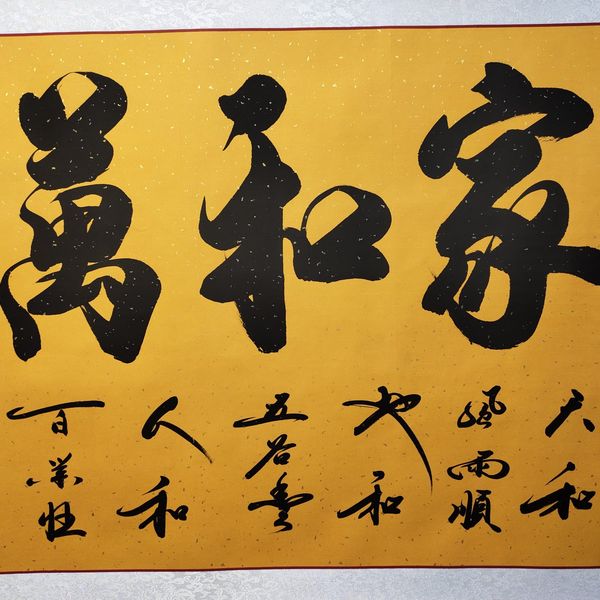 家和萬
天和
風雨順
地和
五谷豐
人和
百業旺